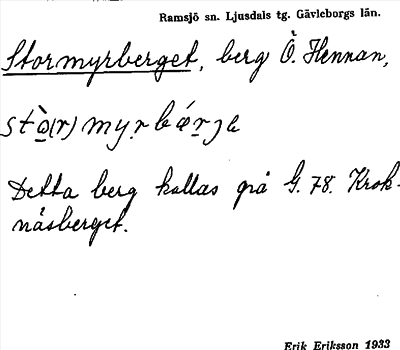 Ramsjö sn. Ljusdals tg. Gävleborgs län.
Stormyrberget, berg Ö. Hennan,
stò̱(r)myṛbǽṟjə
Detta berg kallas på G. 78. Krok-
näsberget.
Erik Eriksson 1933